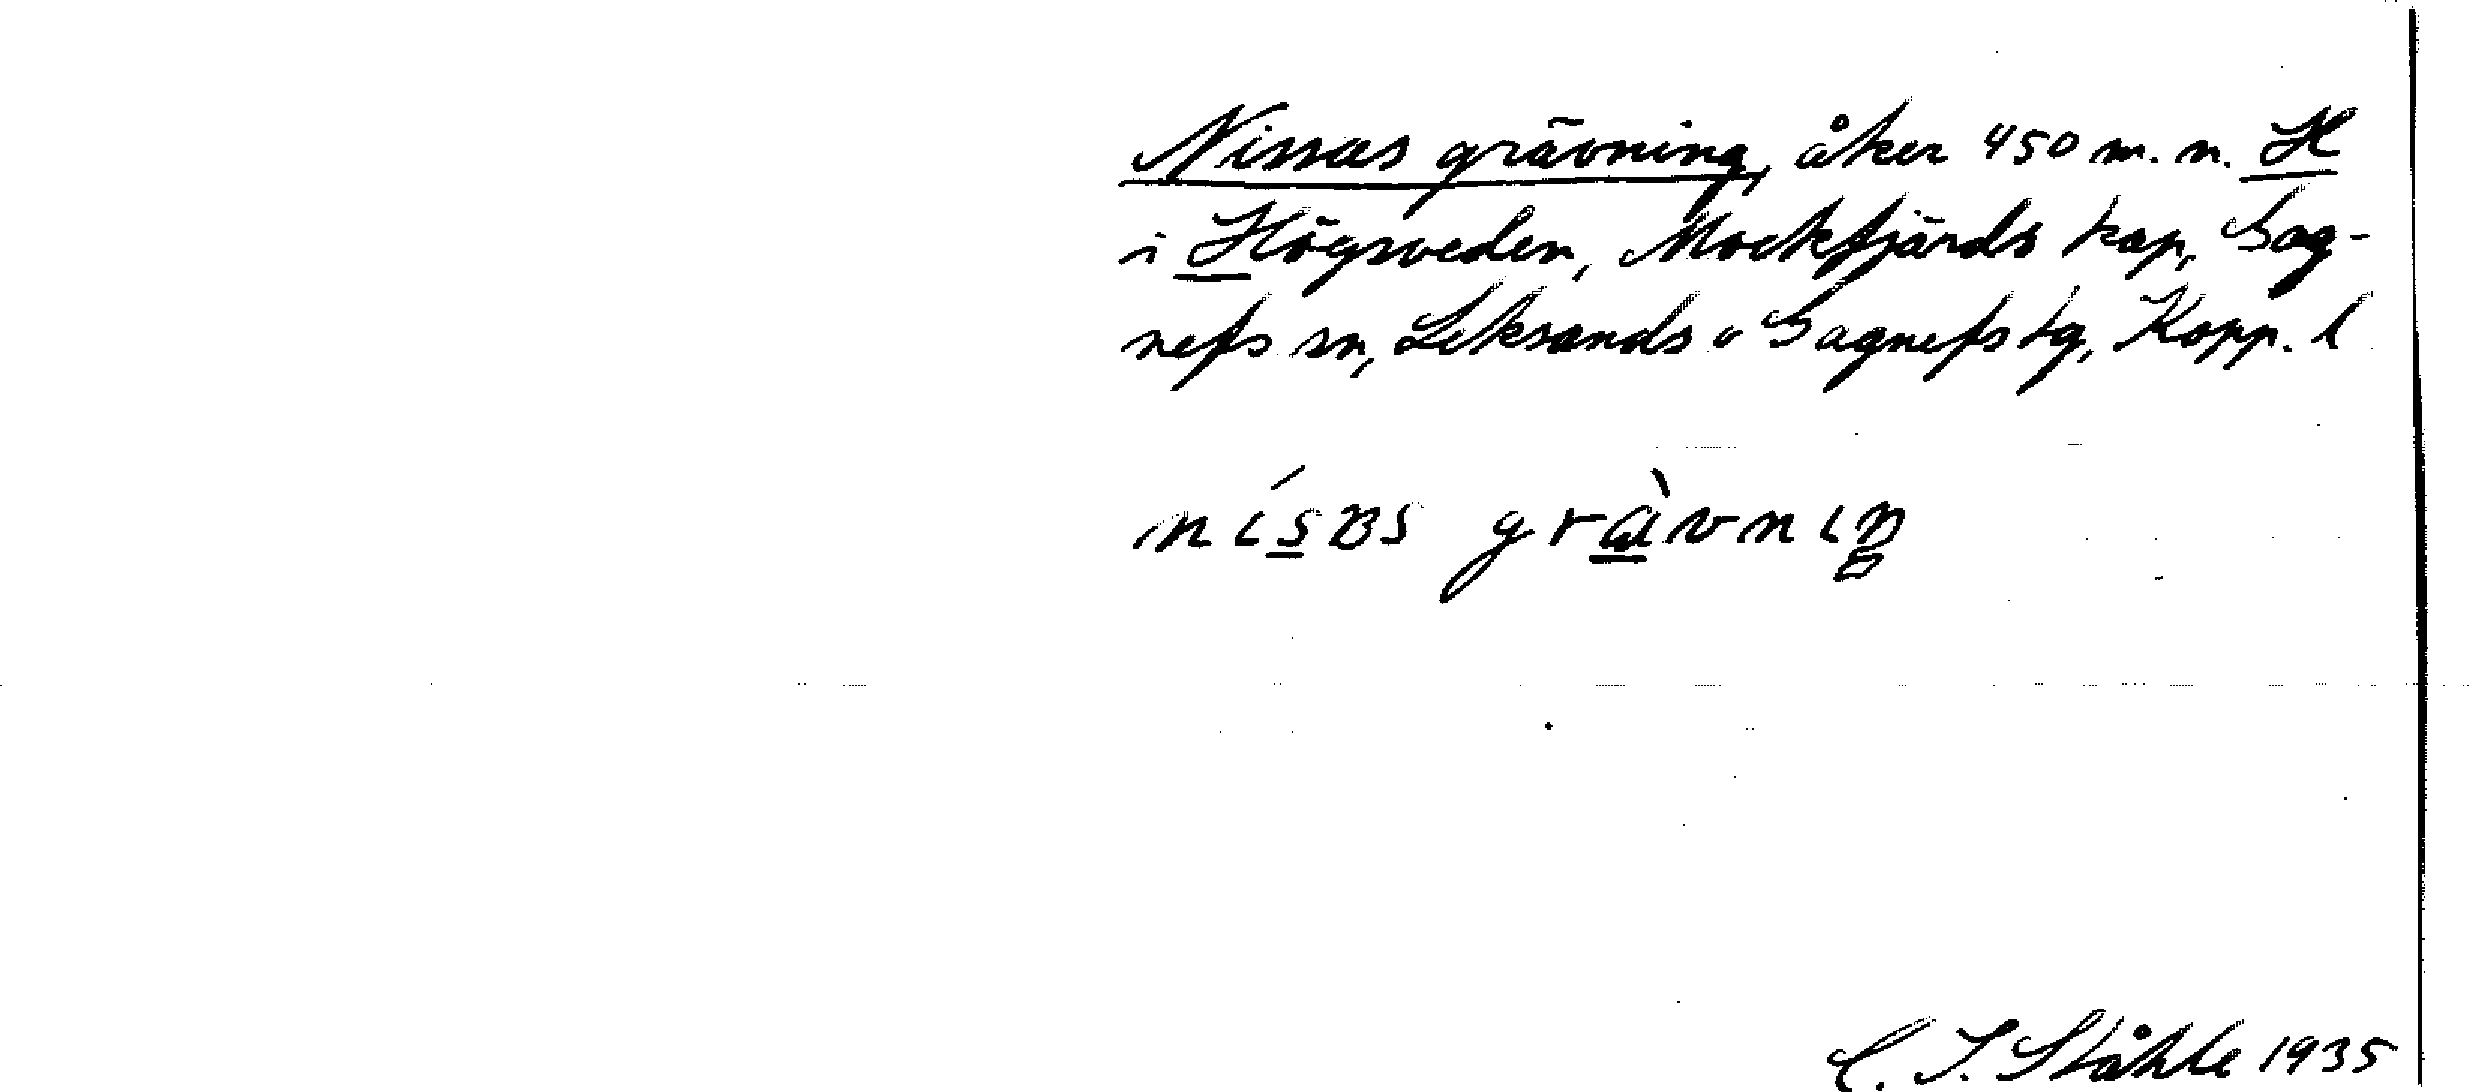 Nissas grävning, åker 450 m. n. H
i Högsveden, Mockfjärds kap, Gag-
nefs sn, Leksands o Gagnefs tg, Kopp. l
nísʙs grà̱vnıŋ
C. I. Ståhle 1935